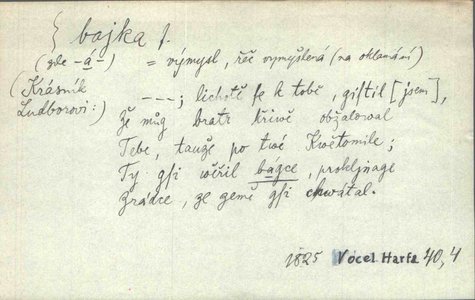 bajka f.
(zde -á-) = výmysl, řeč vymyšlená (na oklamání)
(Krásník
Ludborovi:) ---; lichotě se k tobě, gistil [jsem],
Že můg bratr křiwě obžalowal
Tebe, tauže po twé Kwětomile;
Ty gsi wěřil bágce, proklínage
Zrádce, že gemě gsi chwátal.
1825 Vocel Harfa 40,4